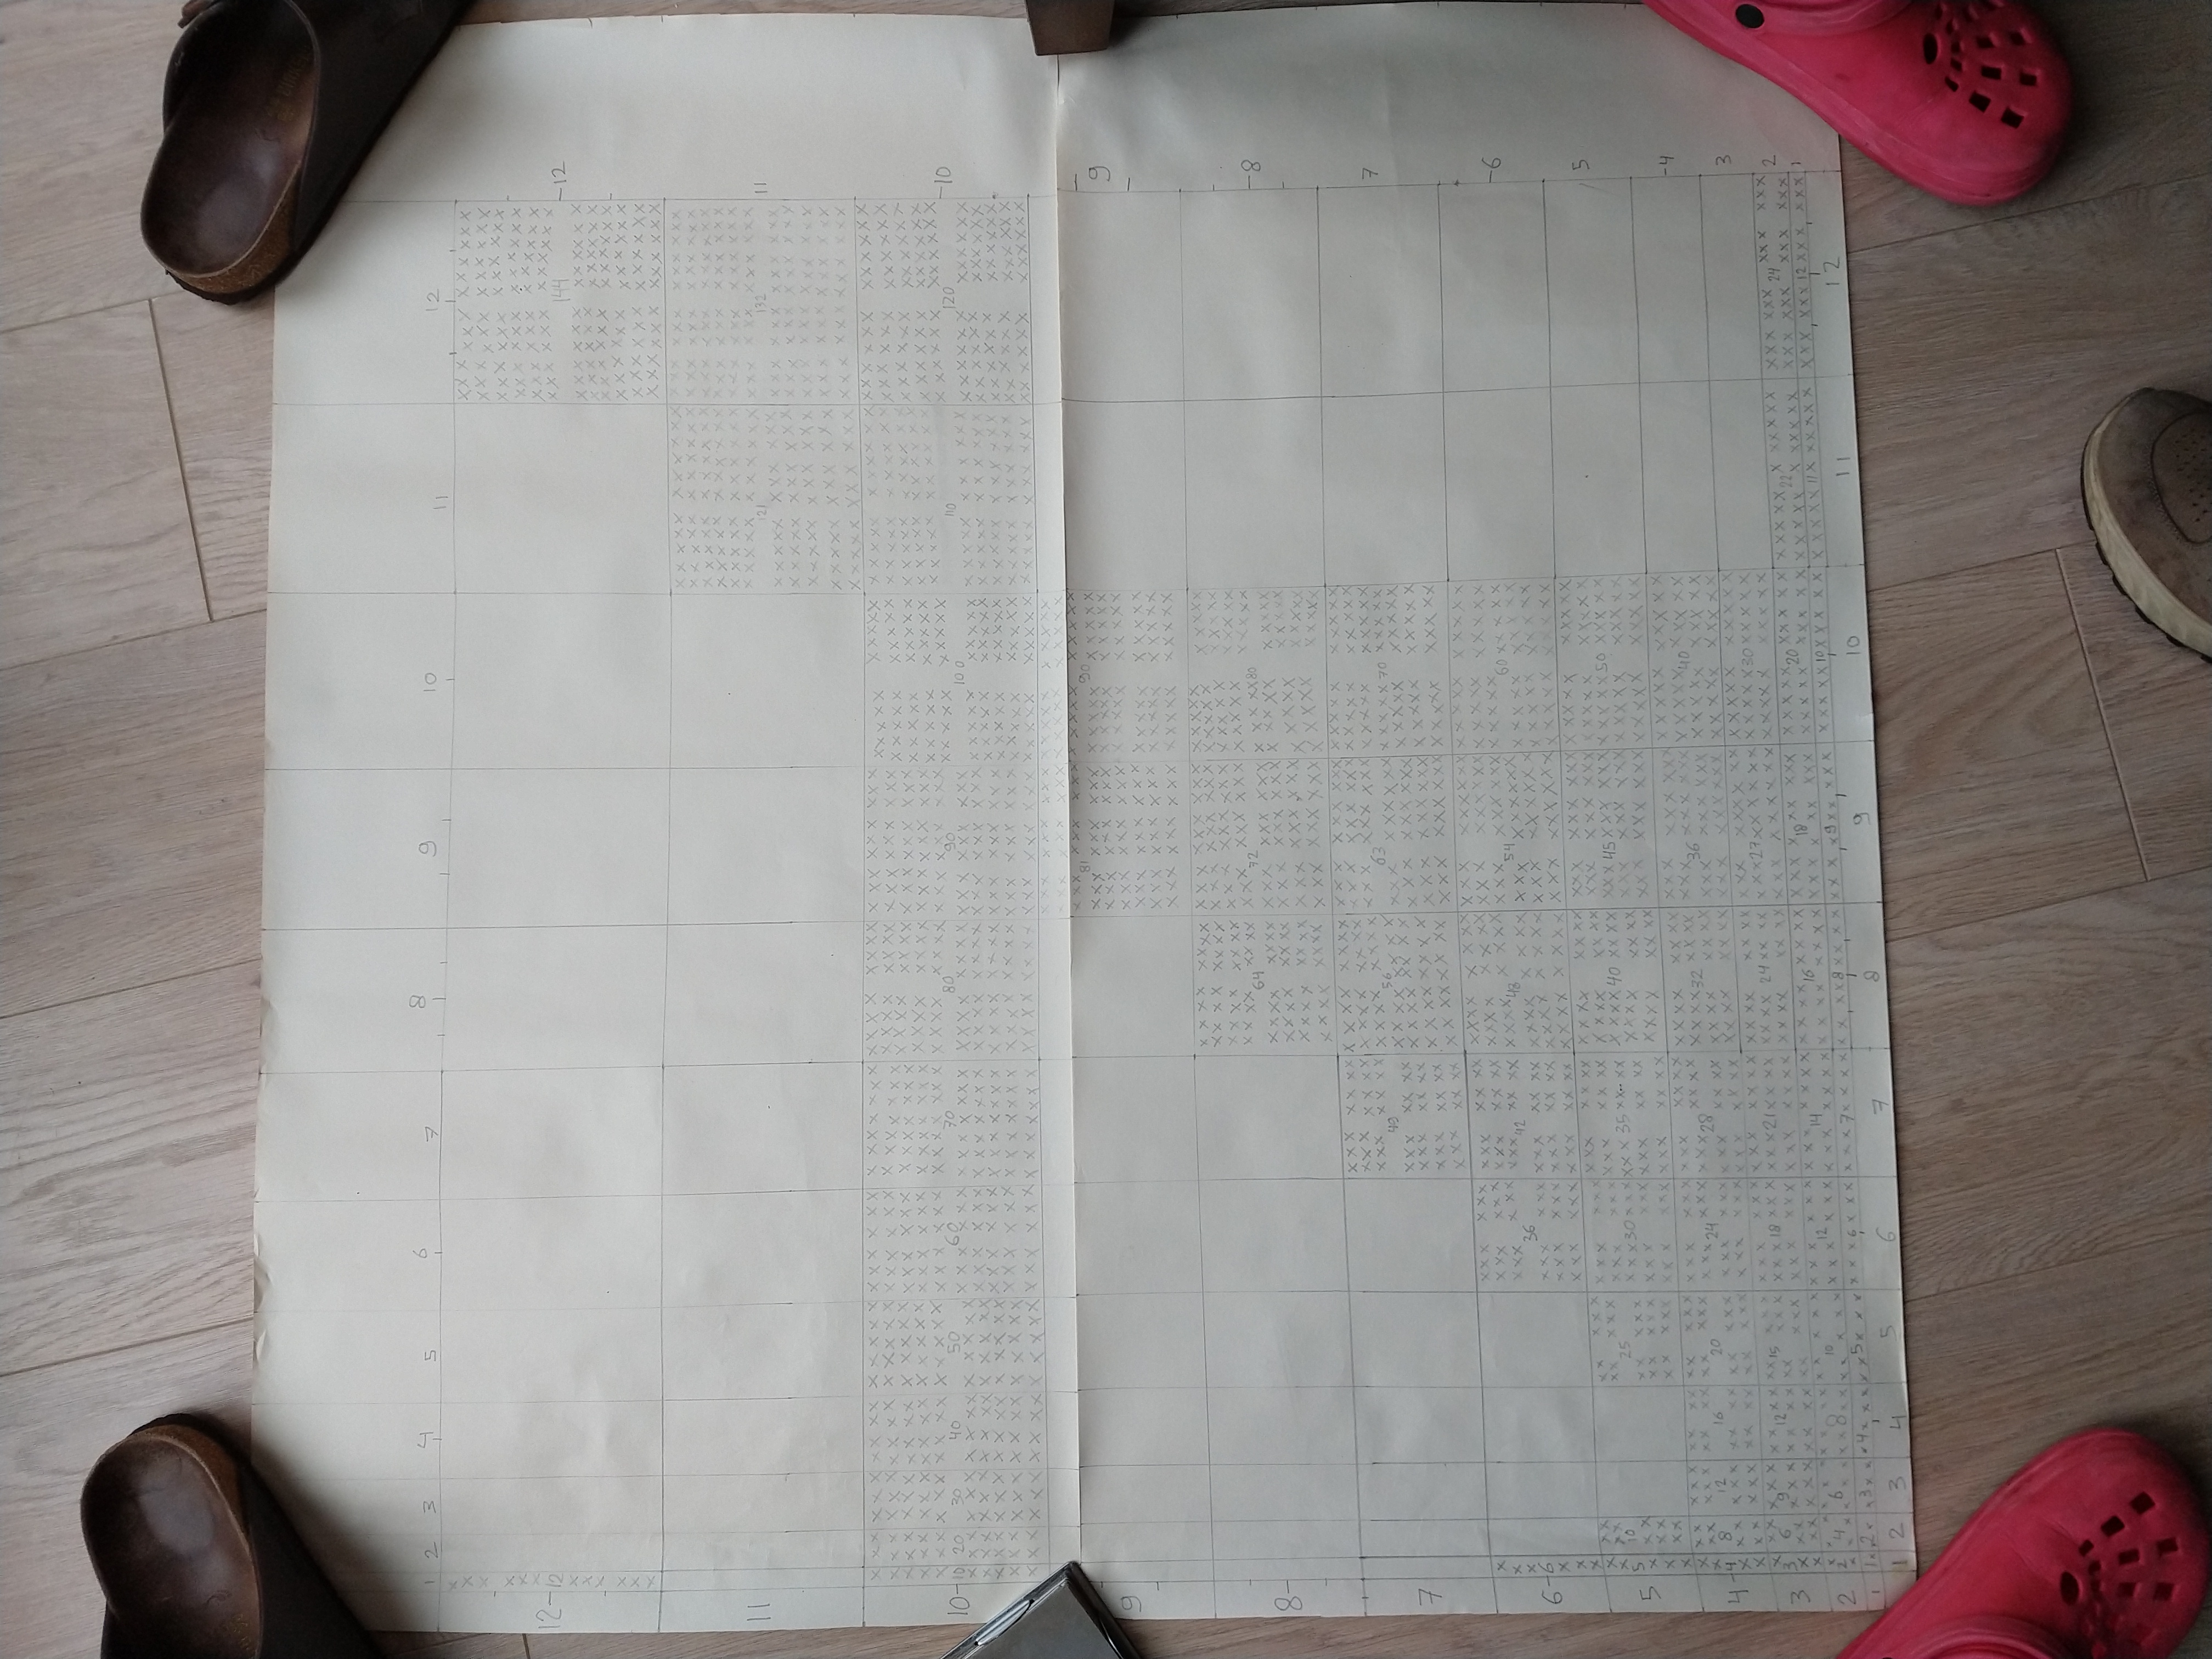 1 2 3 4 5 6 7 8 9 10 11 12
12 12 144 12
11 121 132 11
10 10 20 30 40 50 60 70 80 90 100 110 120 10
9 81 90 9
8 64 72 80 8
7 49 56 63 70 7
6 6 36 42 48 54 60 6
5 5 10 25 30 35 40 45 50 5
4 4 8 12 16 20 24 28 32 36 40 4
3 3 6 9 12 15 18 21 24 27 30 3
2 2 4 6 8 10 12 14 16 18 20 22 24 2
1 1 2 3 4 5 6 7 8 9 10 11 12 1
1 2 3 4 5 6 7 8 9 10 11 12